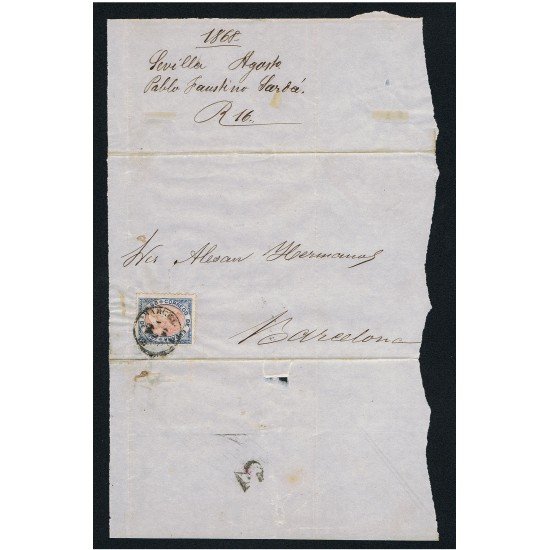 1868.
Sevilla Agosto
Pablo Faustino Sardá.
R 16.
Alexan Hermanos
Barcelona